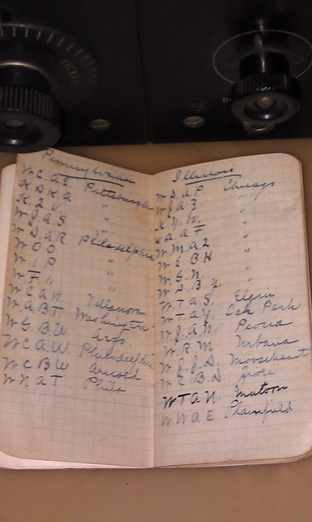 Pennsylvania
W.C.A.E. Pittsburgh
K.D.K.A "
K.Q.V. "
W.J.A.S "
W.D.A.R Philadelphia
W.O.O "
W.I.P "
W.F.I. "
W.C.A.N. Villanova
W.A.B.T Washington
W.C.A.U. Philadelphia
W.C.B.W Arnold
W.N.A.T Phila
Illinois
W.D.A.P Chicago
W.J.A.Z "
K.Y.W. "
W.A.A.F "
W.M.A.Q "
W.E.B.H "
W.T.A.S. Elgin
W.T.A.Y. Oak Park
W.J.A.N. Peoria
W.R.M Urbana
W.J.J.D. Mooseheart
W.C.B.D. Zion
W.T.A.N. Matoon
W.W.A.E Plainfield